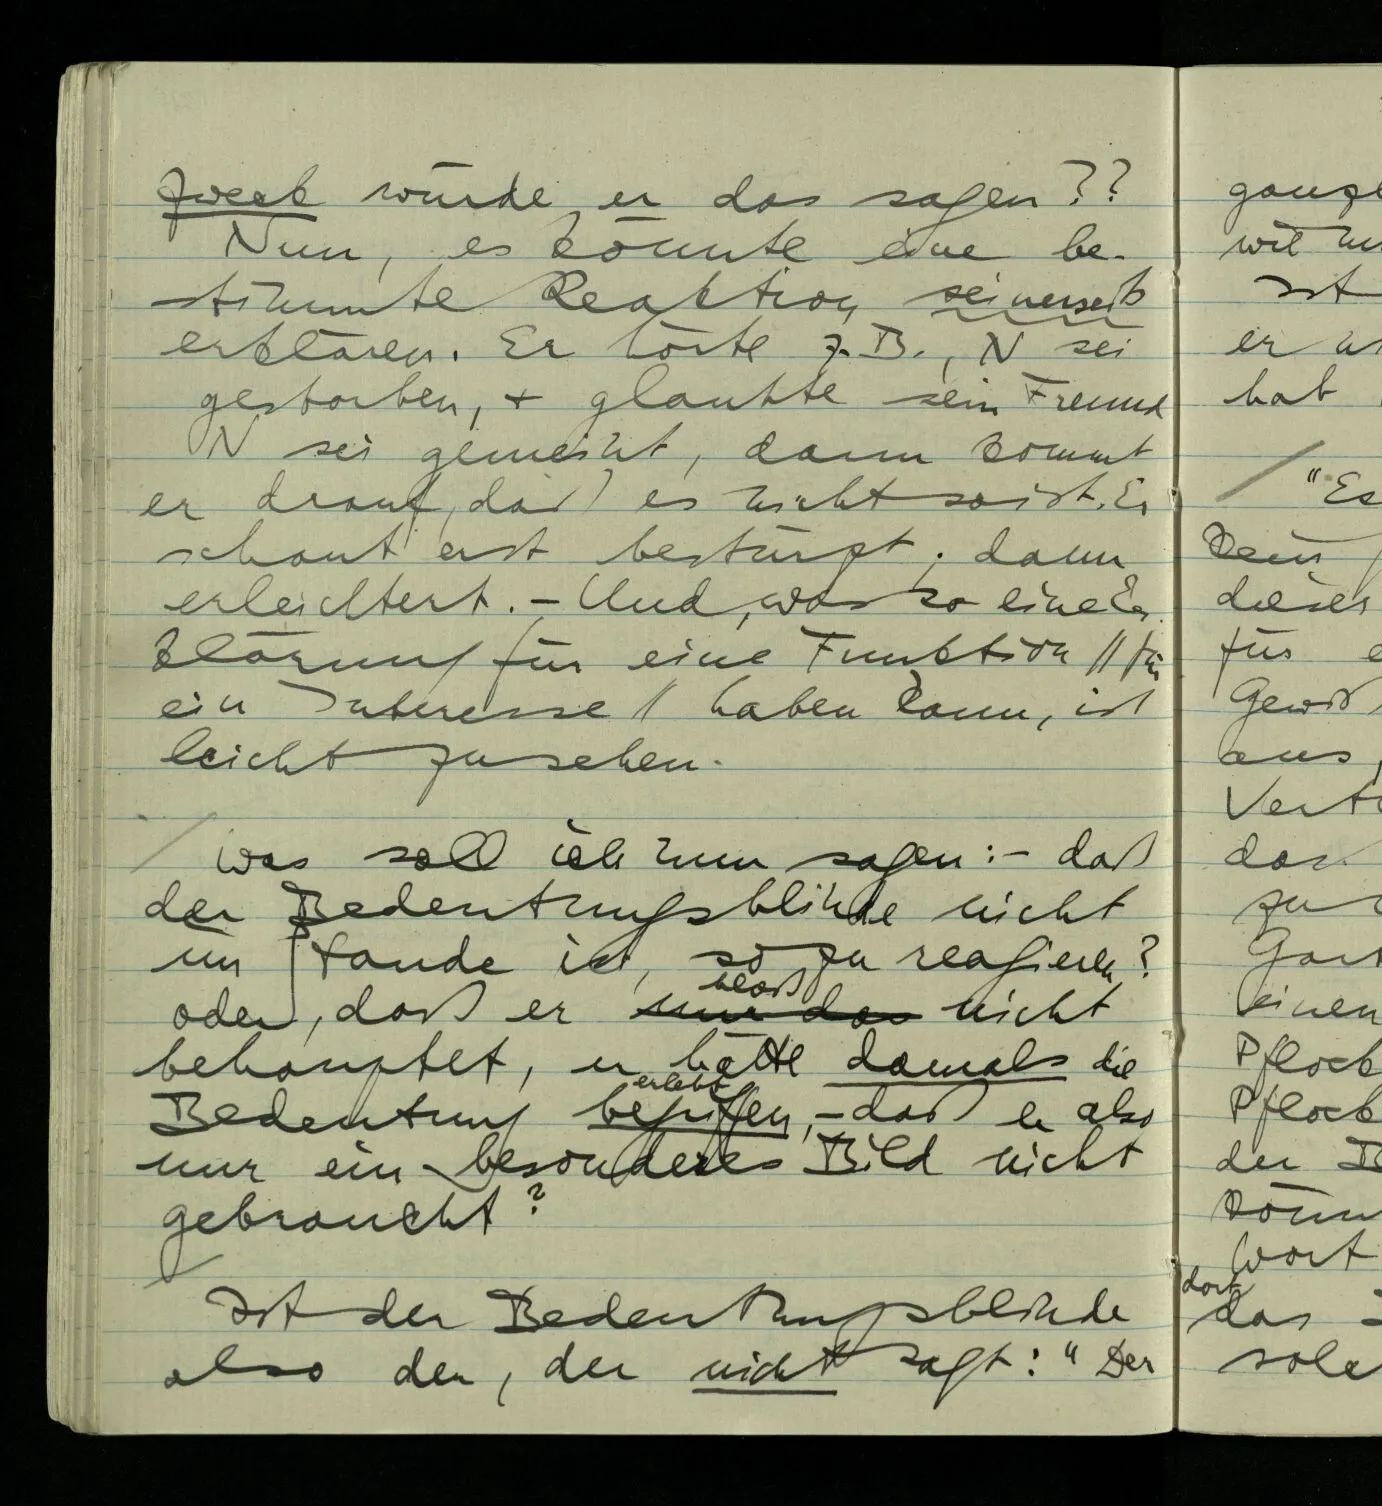 Zweck würde er das sagen??
Nun, es könnte eine be-
stimmte Reaktion seinerseits
erklären. Er hörte z.B., N sei
gestorben, + glaubte sein Freund
N sei gemeint, dann kommt
er drauf, daß es nicht so ist. Er
schaut erst bestürzt; dann
erleichtert. – Und, was so eine Er-
klärung für eine Funktion // für
ein Interesse // haben kann, ist
leicht zu sehen.
/ Was soll ich nun sagen: – daß
der Bedeutungsblinde nicht
im Stande ist, so zu reagieren?
bloß
oder, daß er nur das nicht
behauptet, er hätte damals die
erlebt
Bedeutung begriffen, – daß er also
nur ein besonderes Bild nicht
gebraucht?
/
Ist der Bedeutungsblinde
also der, der nicht sagt: "Der
ganze
wil
Ist
er
hab
/ "Es
Dein
dieser
für
Gewiß
aus,
Vert
das
zu
Gart
einen
Pflock
Pflock
der
könn
Wort
dort
das
sole